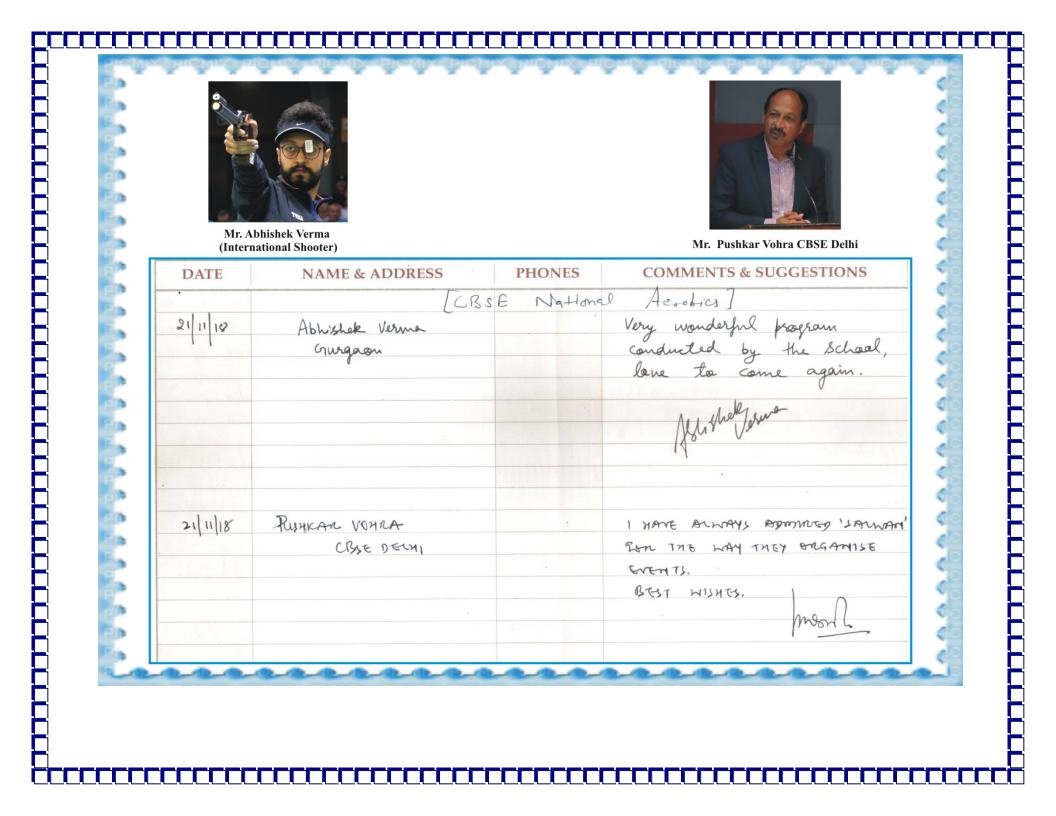 Mr. Abhishek Verma
(International Shooter)
Mr. Pushkar Vohra CBSE Delhi
DATE NAME & ADDRESS PHONES COMMENTS & SUGGESTIONS
[CBSE National Aerobics]
21/11/18 Abhishek Verma Very wonderful program
Gurgaon conducted by the School,
love to come again.
Abhishek
Verma
21/11/18 PUSHKAR VOHRA I HAVE ALWAYS ADMIRED 'SALWAN'
CBSE DELHI FOR THE WAY THEY ORGANISE
EVENTS.
BEST WISHES.